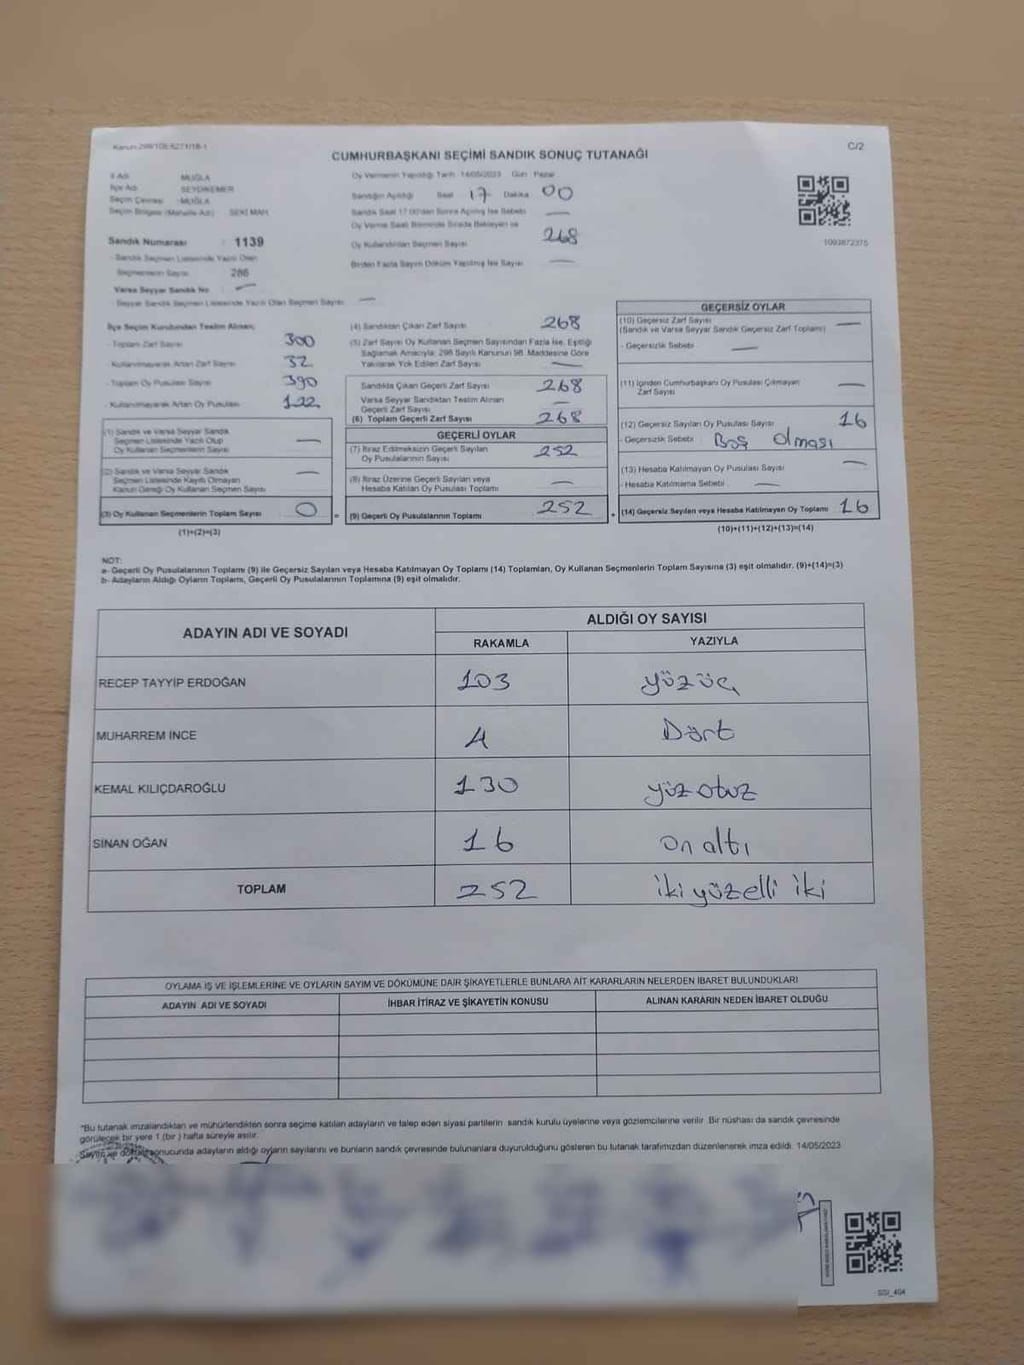 CUMHURBAŞKANI SEÇİMİ SANDIK SONUÇ TUTANAĞI
C/2
İl Adı MUĞLA
İlçe Adı SEYDİKEMER
Seçim Çevresi MUĞLA
Seçim Bölgesi (Mahalle Adı) SEKİ MAH.
Sandık Numarası : 1139
Sandık Seçmen Listesinde Yazılı Olan
Seçmenlerin Sayısı
Varsa Seyyar Sandık No —
Seyyar Sandık Seçmen Listesinde Yazılı Olan Seçmen Sayısı —
Oy Vermenin Yapıldığı Tarih: 14/05/2023 Gün : Pazar
Sandığın Açıldığı Saat 17 Dakika 00
Sandık Saat 17.00'den Sonra Açılmış İse Sebebi —
Oy Kullandırılan Seçmen Sayısı 268
Birden Fazla Sayım Döküm Yapılmış İse Sayısı —
1003872375
İlçe Seçim Kurulundan Teslim Alınan;
- Toplam Zarf Sayısı 300
- Kullanılmayarak Artan Zarf Sayısı 32
- Toplam Oy Pusulası Sayısı 390
- Kullanılmayarak Artan Oy Pusulası 122
(1) Sandık ve Varsa Seyyar Sandık
Seçmen Listesinde Yazılı Olup
Oy Kullanan Seçmenlerin Sayısı —
(2) Sandık ve Varsa Seyyar Sandık
Seçmen Listesinde Kayıtlı Olmayan
Kanun Gereği Oy Kullanan Seçmen Sayısı —
(3) Oy Kullanan Seçmenlerin Toplam Sayısı 0 =
(1)+(2)=(3)
(4) Sandıktan Çıkan Zarf Sayısı 268
(5) Zarf Sayısı Oy Kullanan Seçmen Sayısından Fazla İse, Eşitliği
Sağlamak Amacıyla; 298 Sayılı Kanunun 98. Maddesine Göre
Yakılarak Yok Edilen Zarf Sayısı —
Sandıkta Çıkan Geçerli Zarf Sayısı 268
Varsa Seyyar Sandıktan Teslim Alınan
Geçerli Zarf Sayısı —
(6) Toplam Geçerli Zarf Sayısı 268
GEÇERLİ OYLAR
(7) İtiraz Edilmeksizin Geçerli Sayılan
Oy Pusulalarının Sayısı 252
(8) İtiraz Üzerine Geçerli Sayılan veya
Hesaba Katılan Oy Pusulası Toplamı —
(9) Geçerli Oy Pusulalarının Toplamı 252 +
GEÇERSİZ OYLAR
(10) Geçersiz Zarf Sayısı
(Sandık ve Varsa Seyyar Sandık Geçersiz Zarf Toplamı) —
- Geçersizlik Sebebi —
(11) İçinden Cumhurbaşkanı Oy Pusulası Çıkmayan
Zarf Sayısı —
(12) Geçersiz Sayılan Oy Pusulası Sayısı 16
- Geçersizlik Sebebi Boş olması
(13) Hesaba Katılmayan Oy Pusulası Sayısı —
- Hesaba Katılmama Sebebi —
(14) Geçersiz Sayılan veya Hesaba Katılmayan Oy Toplamı 16
(10)+(11)+(12)+(13)=(14)
NOT:
a- Geçerli Oy Pusulalarının Toplamı (9) ile Geçersiz Sayılan veya Hesaba Katılmayan Oy Toplamı (14) Toplamları, Oy Kullanan Seçmenlerin Toplam Sayısına (3) eşit olmalıdır. (9)+(14)=(3)
b- Adayların Aldığı Oyların Toplamı, Geçerli Oy Pusulalarının Toplamına (9) eşit olmalıdır.
ADAYIN ADI VE SOYADI
ALDIĞI OY SAYISI
RAKAMLA YAZIYLA
RECEP TAYYİP ERDOĞAN 103 yüzüç
MUHARREM İNCE 4 Dört
KEMAL KILIÇDAROĞLU 130 yüz otuz
SİNAN OĞAN 16 on altı
TOPLAM 252 iki yüzelli iki
OYLAMA İŞ VE İŞLEMLERİNE VE OYLARIN SAYIM VE DÖKÜMÜNE DAİR ŞİKAYETLERLE BUNLARA AİT KARARLARIN NELERDEN İBARET BULUNDUKLARI
ADAYIN ADI VE SOYADI İHBAR İTİRAZ VE ŞİKAYETİN KONUSU ALINAN KARARIN NEDEN İBARET OLDUĞU
*Bu tutanak imzalandıktan ve mühürlendikten sonra seçime katılan adayların ve talep eden siyasi partilerin sandık kurulu üyelerine veya gözlemcilerine verilir. Bir nüshası da sandık çevresinde
görülecek bir yere 1 (bir ) hafta süreyle asılır.
Sayım ve döküm sonucunda adayların aldığı oyların sayılarını ve bunların sandık çevresinde bulunanlara duyurulduğunu gösteren bu tutanak tarafımızdan düzenlenerek imza edildi. 14/05/2023